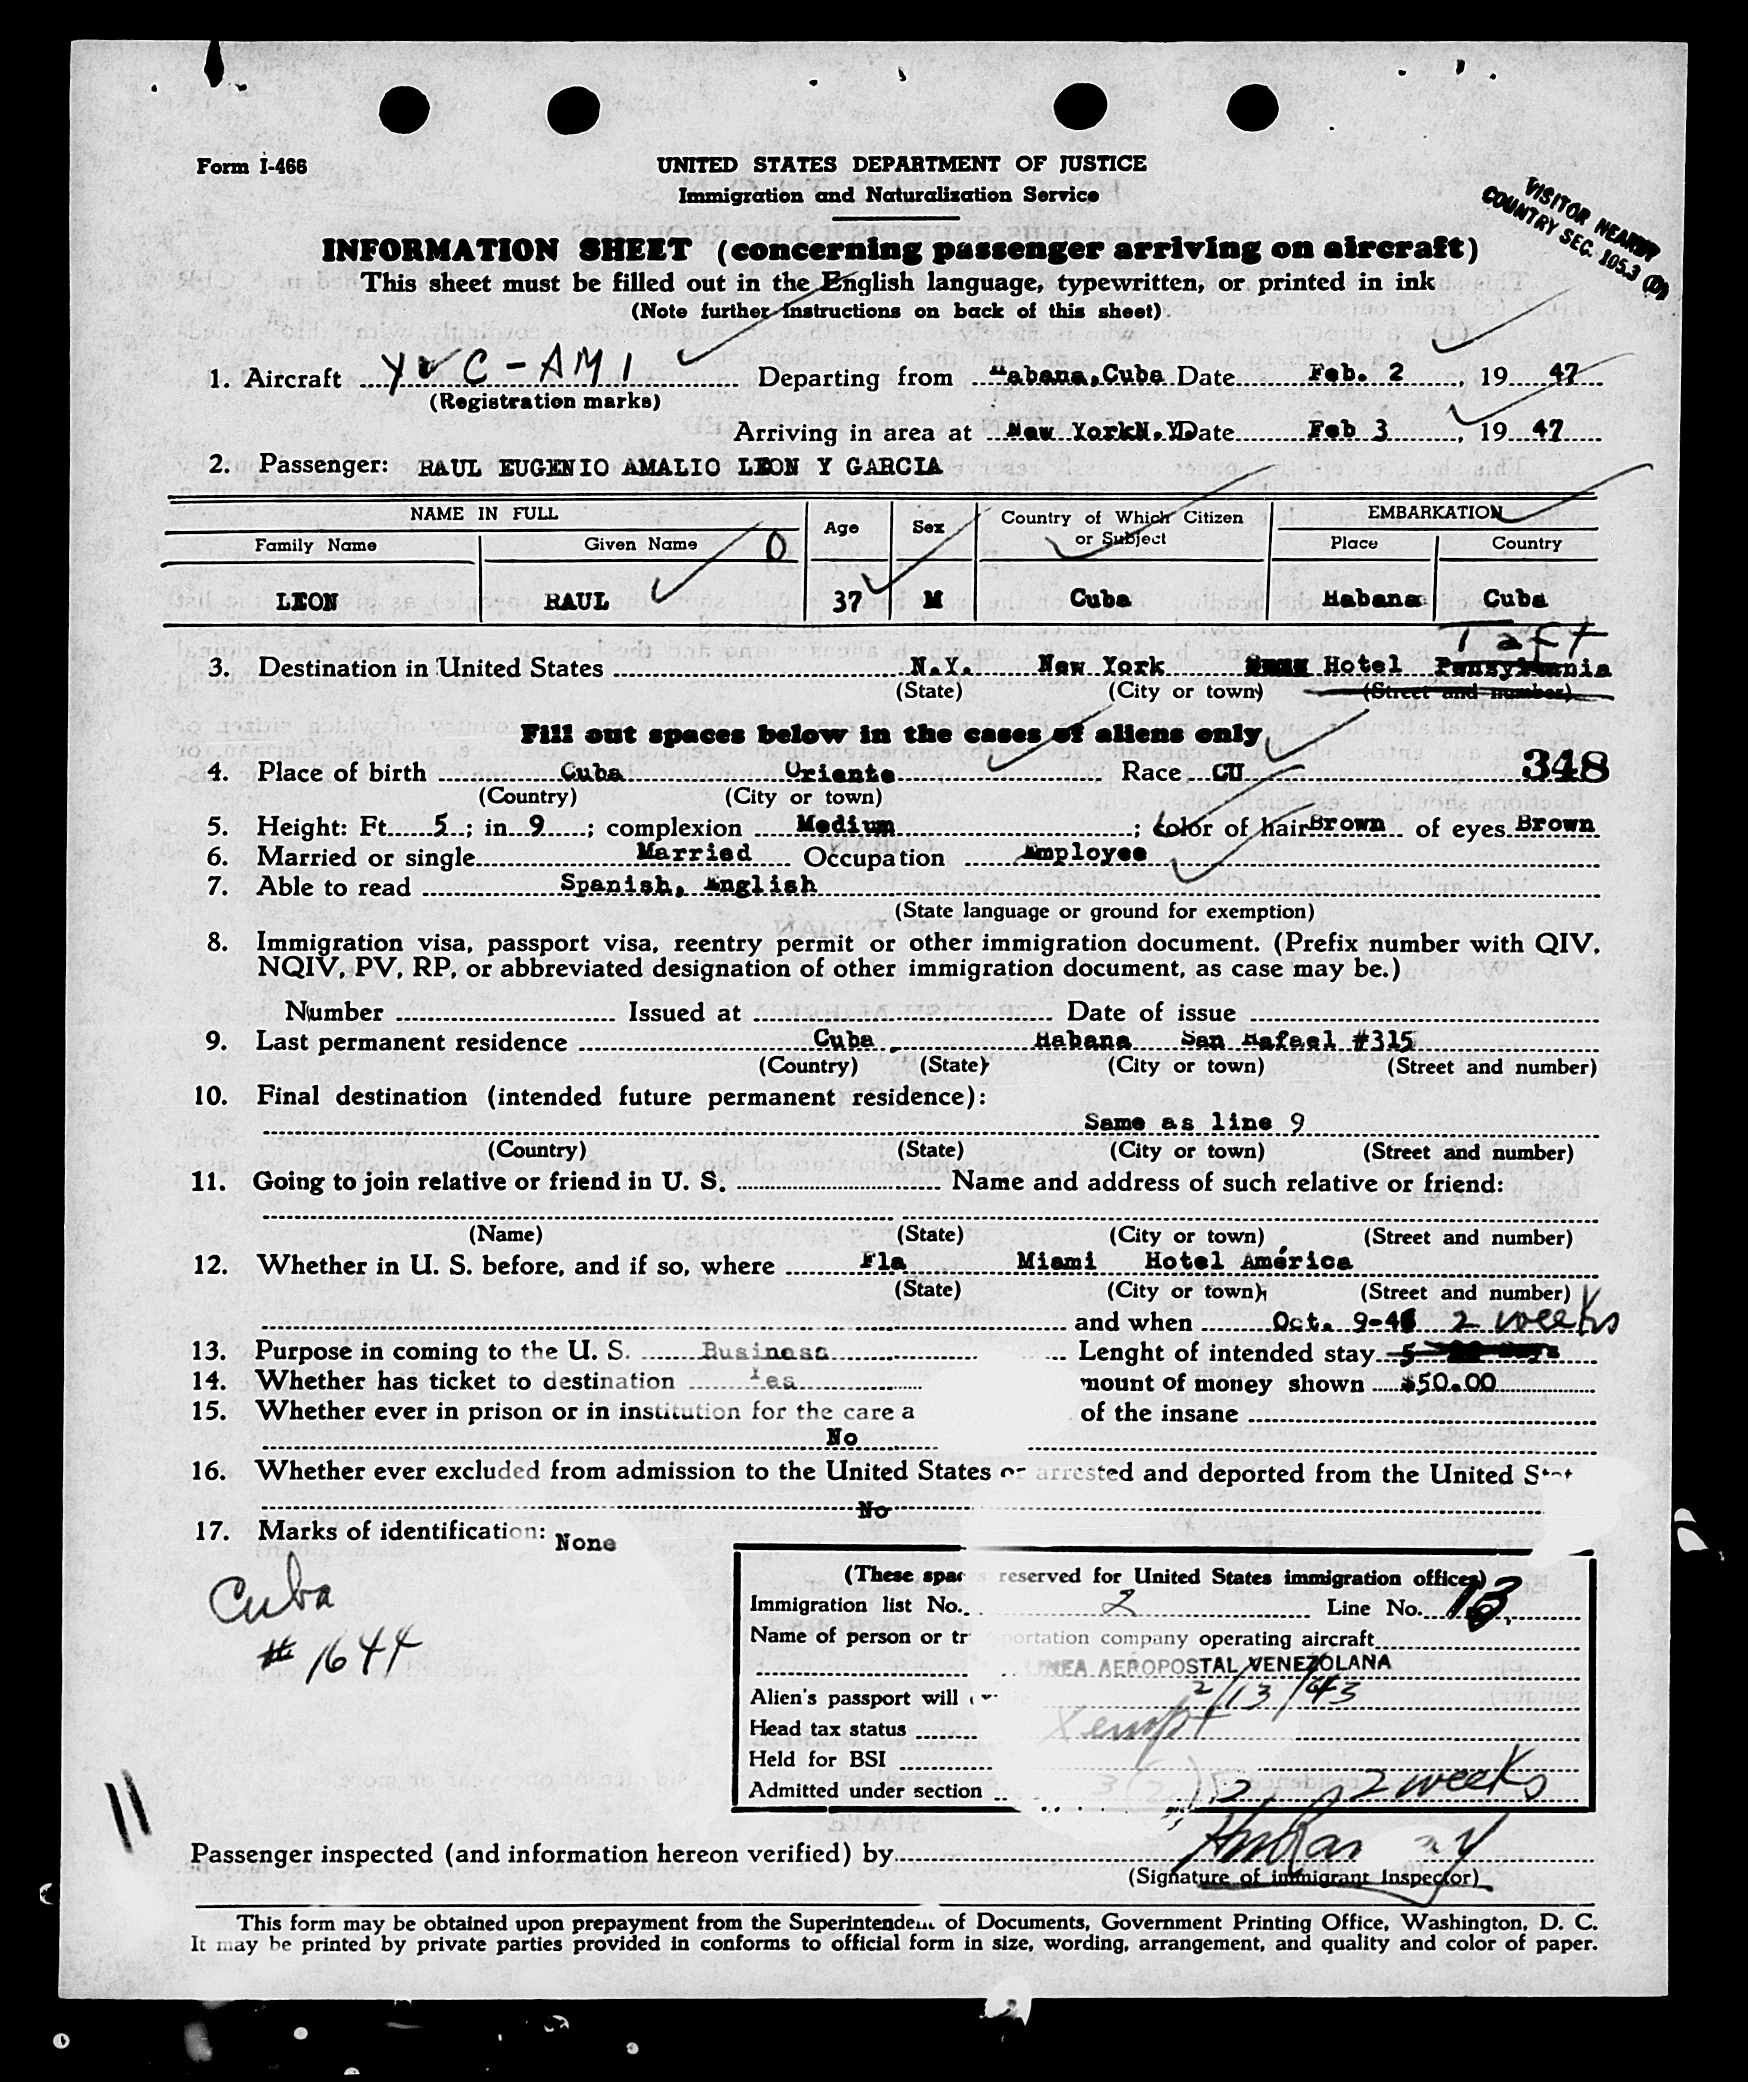 Form I-466
UNITED STATES DEPARTMENT OF JUSTICE
Immigration and Naturalization Service
VISITOR NEARBY
COUNTRY SEC. 105.3 (D)
INFORMATION SHEET (concerning passenger arriving on aircraft)
This sheet must be filled out in the English language, typewritten, or printed in ink
(Note further instructions on back of this sheet)
1. Aircraft YVC-AMI Departing from Habana, Cuba Date Feb. 2, 1947
(Registration marks)
Arriving in area at New York N.Y. Date Feb 3, 1947
2. Passenger: RAUL EUGENIO AMALIO LEON Y GARCIA
NAME IN FULL Age Sex Country of Which Citizen or Subject EMBARKATION
Family Name Given Name O Place Country
LEON RAUL 37 M Cuba Habana Cuba
Taft
3. Destination in United States N.Y. New York Hotel Pensylvania
(State) (City or town) (Street and number)
Fill out spaces below in the cases of aliens only
348
4. Place of birth Cuba Oriente Race CU
(Country) (City or town)
5. Height: Ft. 5; in. 9; complexion Medium; color of hair Brown of eyes Brown
6. Married or single Married Occupation Employee
7. Able to read Spanish, English
(State language or ground for exemption)
8. Immigration visa, passport visa, reentry permit or other immigration document. (Prefix number with QIV,
NQIV, PV, RP, or abbreviated designation of other immigration document, as case may be.)
Number Issued at Date of issue
9. Last permanent residence Cuba, Habana San Rafael #315
(Country) (State) (City or town) (Street and number)
10. Final destination (intended future permanent residence):
Same as line 9
(Country) (State) (City or town) (Street and number)
11. Going to join relative or friend in U. S. Name and address of such relative or friend:
(Name) (State) (City or town) (Street and number)
12. Whether in U. S. before, and if so, where Fla Miami Hotel América
(State) (City or town) (Street and number)
and when Oct. 9-46 2 weeks
13. Purpose in coming to the U. S. Business Lenght of intended stay 5
14. Whether has ticket to destination Yes mount of money shown $50.00
15. Whether ever in prison or in institution for the care a of the insane
No
16. Whether ever excluded from admission to the United States or arrested and deported from the United Stat
No
17. Marks of identification: None
Cuba
#1644
(These spaces reserved for United States immigration officer)
Immigration list No. 2 Line No. 13
Name of person or transportation company operating aircraft
LINEA AEROPOSTAL VENEZOLANA
Alien's passport will 2/13/43
Head tax status Xempt
Held for BSI
Admitted under section 3(2) 2 weeks
Passenger inspected (and information hereon verified) by
(Signature of immigrant Inspector)
This form may be obtained upon prepayment from the Superintendent of Documents, Government Printing Office, Washington, D. C.
It may be printed by private parties provided in conforms to official form in size, wording, arrangement, and quality and color of paper.